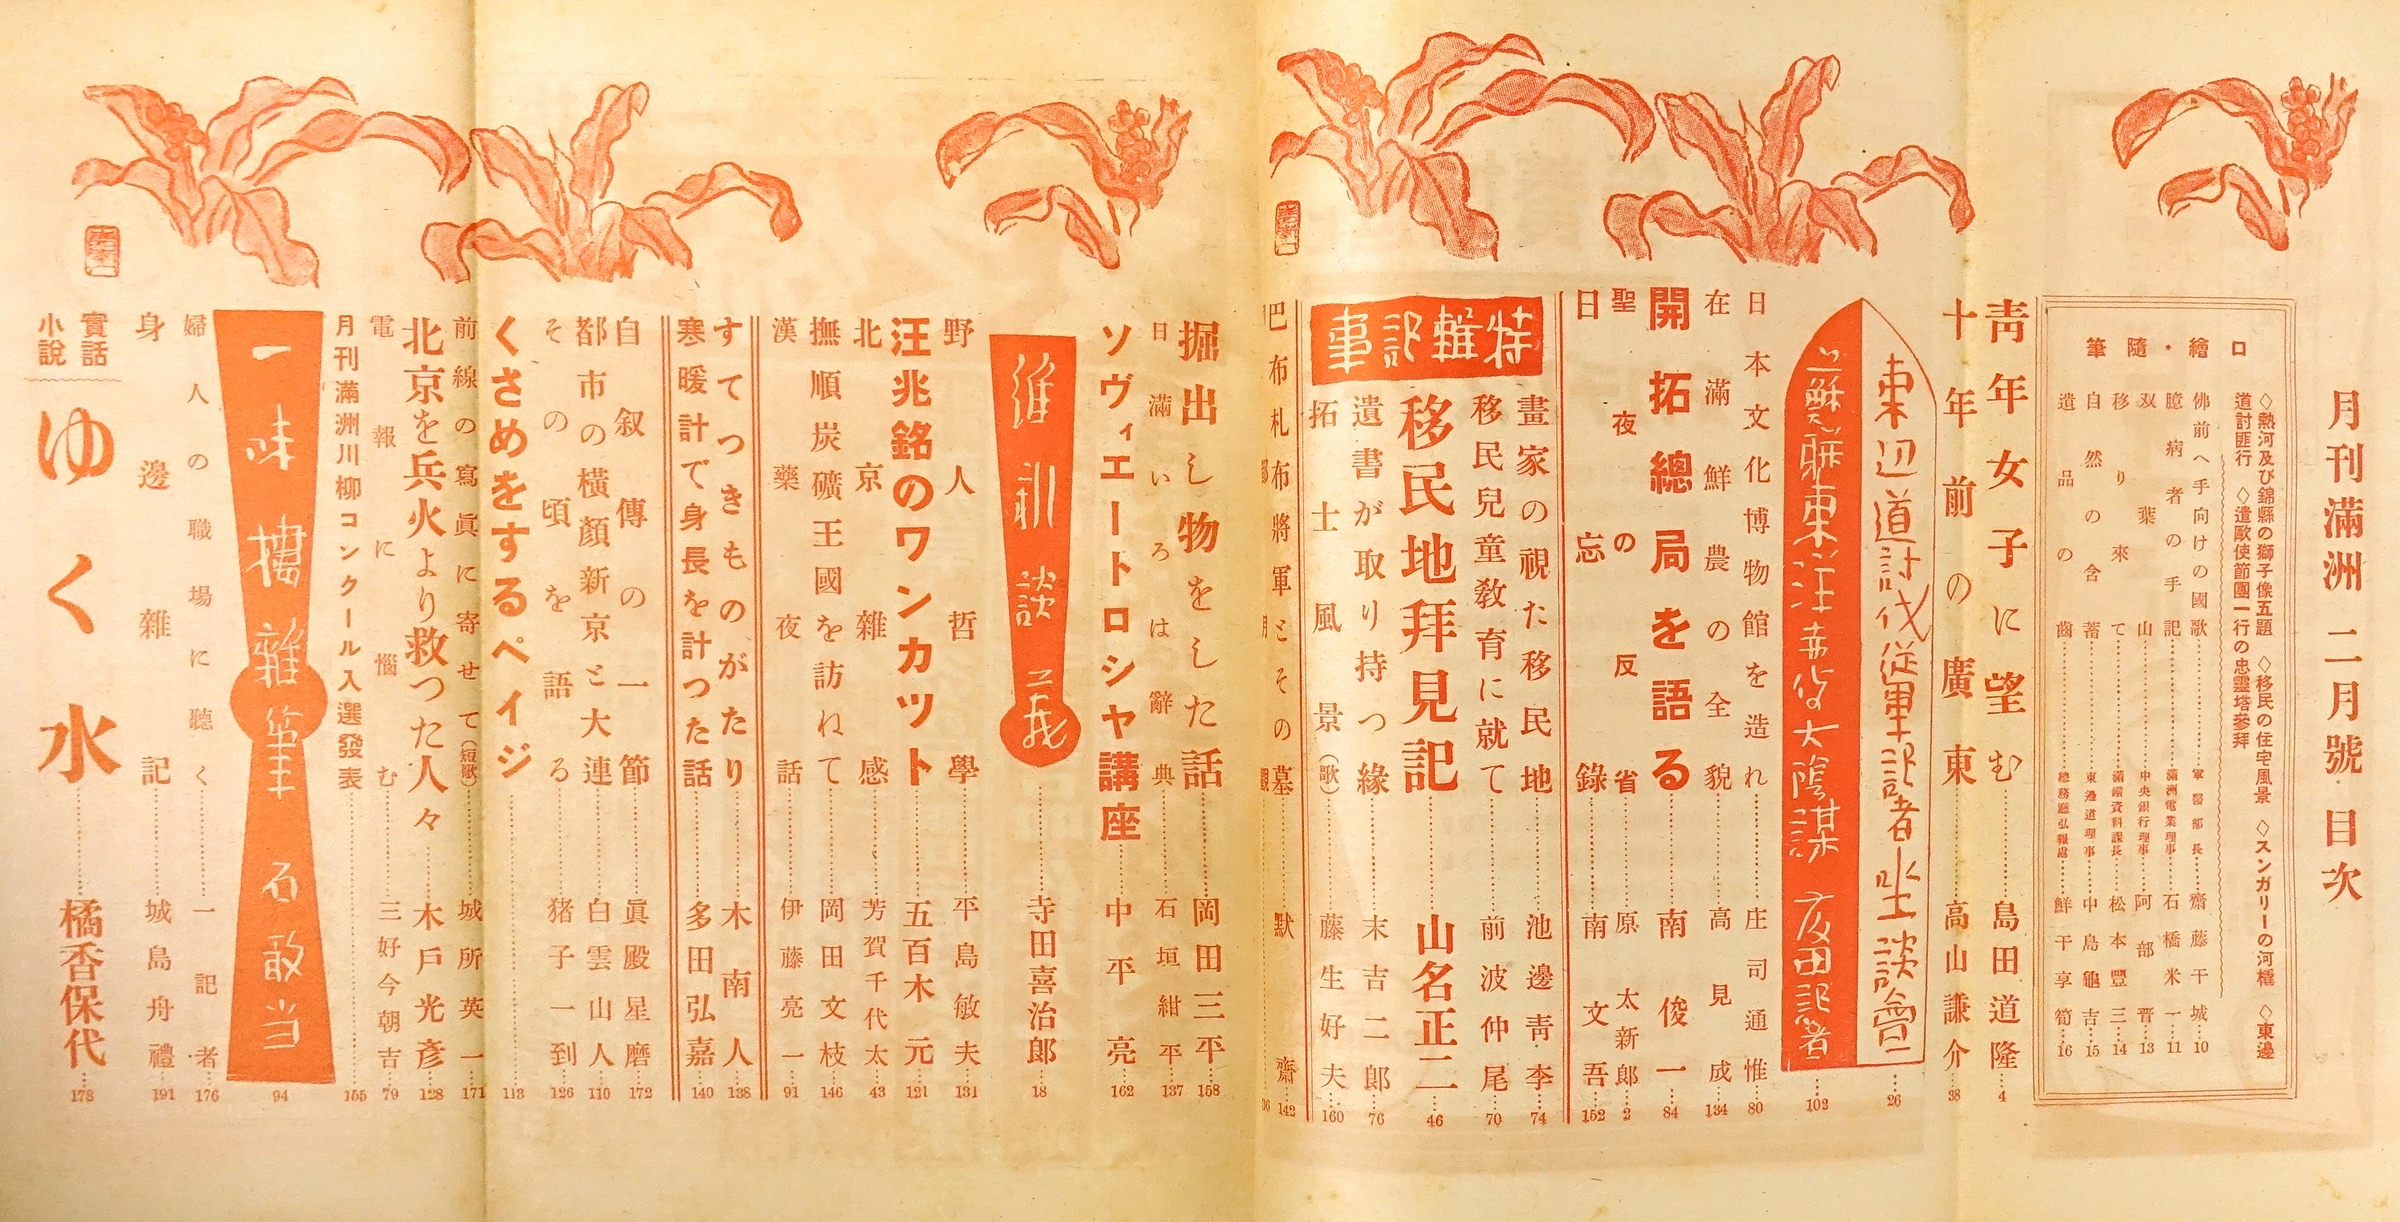 月刊滿洲 二月號 目次
口繪・隨筆
◇熱河及び錦縣の獅子像五題 ◇移民の住宅風景 ◇スンガリーの河橇 ◇東邊
道討匪行 ◇遣歐使節團一行の忠靈塔參拜
佛前へ手向けの國歌 軍醫部長 齋藤干城 10
臆病者の手記 滿洲電業理事 石橋米一 11
双葉山 中央銀行理事 阿部晋 13
移り來て 滿鐵資料課長 松本豐三 14
自然の含蓄 東邊道理事 中島龜吉 15
遺品の齒 總務廳弘報處 鮮干享筍 16
靑年女子に望む 島田道隆 4
十年前の廣東 高山謙介 38
東辺道討伐従軍記者坐談會 26
ソ聯東洋赤化大陰謀 夜田記者 102
日本文化博物館を造れ 庄司通惟 80
在滿鮮農の全貌 高見成 134
開拓總局を語る 南俊一 84
聖夜の反省 原太新郎 2
日忘錄 南文吾 152
特輯記事
畫家の視た移民地 池邊靑李 74
移民兒童敎育に就て 前波仲尾 70
移民地拜見記 山名正二 46
遺書が取り持つ緣 末吉二郎 76
拓士風景(歌) 藤生好夫 160
巴布札布將軍とその墓 默齋 142
掘出し物をした話 岡田三平 158
日滿いろは辭典 石垣紺平 137
ソヴィエートロシヤ講座 中平亮 162
寺田喜治郎 18
野人哲學 平島敏夫 131
汪兆銘のワンカツト 五百木元 121
北京雜感 芳賀千代太 43
撫順炭礦王國を訪ねて 岡田文枝 146
漢藥夜話 伊藤亮一 91
すてつきものがたり 木南人 138
寒暖計で身長を計つた話 多田弘嘉 140
自叙傳の一節 眞殿星磨 172
都市の橫顏新京と大連 白雲山人 110
その頃を語る 猪子一到 126
くさめをするペイジ 113
前線の寫眞に寄せて(短歌) 城所英一 171
北京を兵火より救つた人々 木戸光彦 128
電報に惱む 三好今朝吉 79
月刊滿洲川柳コンクール入選發表 155
一味摟雜筆 石敢当 94
婦人の職場に聽く 一記者 176
身邊雜記 城島舟禮 191
實話小說 ゆく水 橘香保代 178